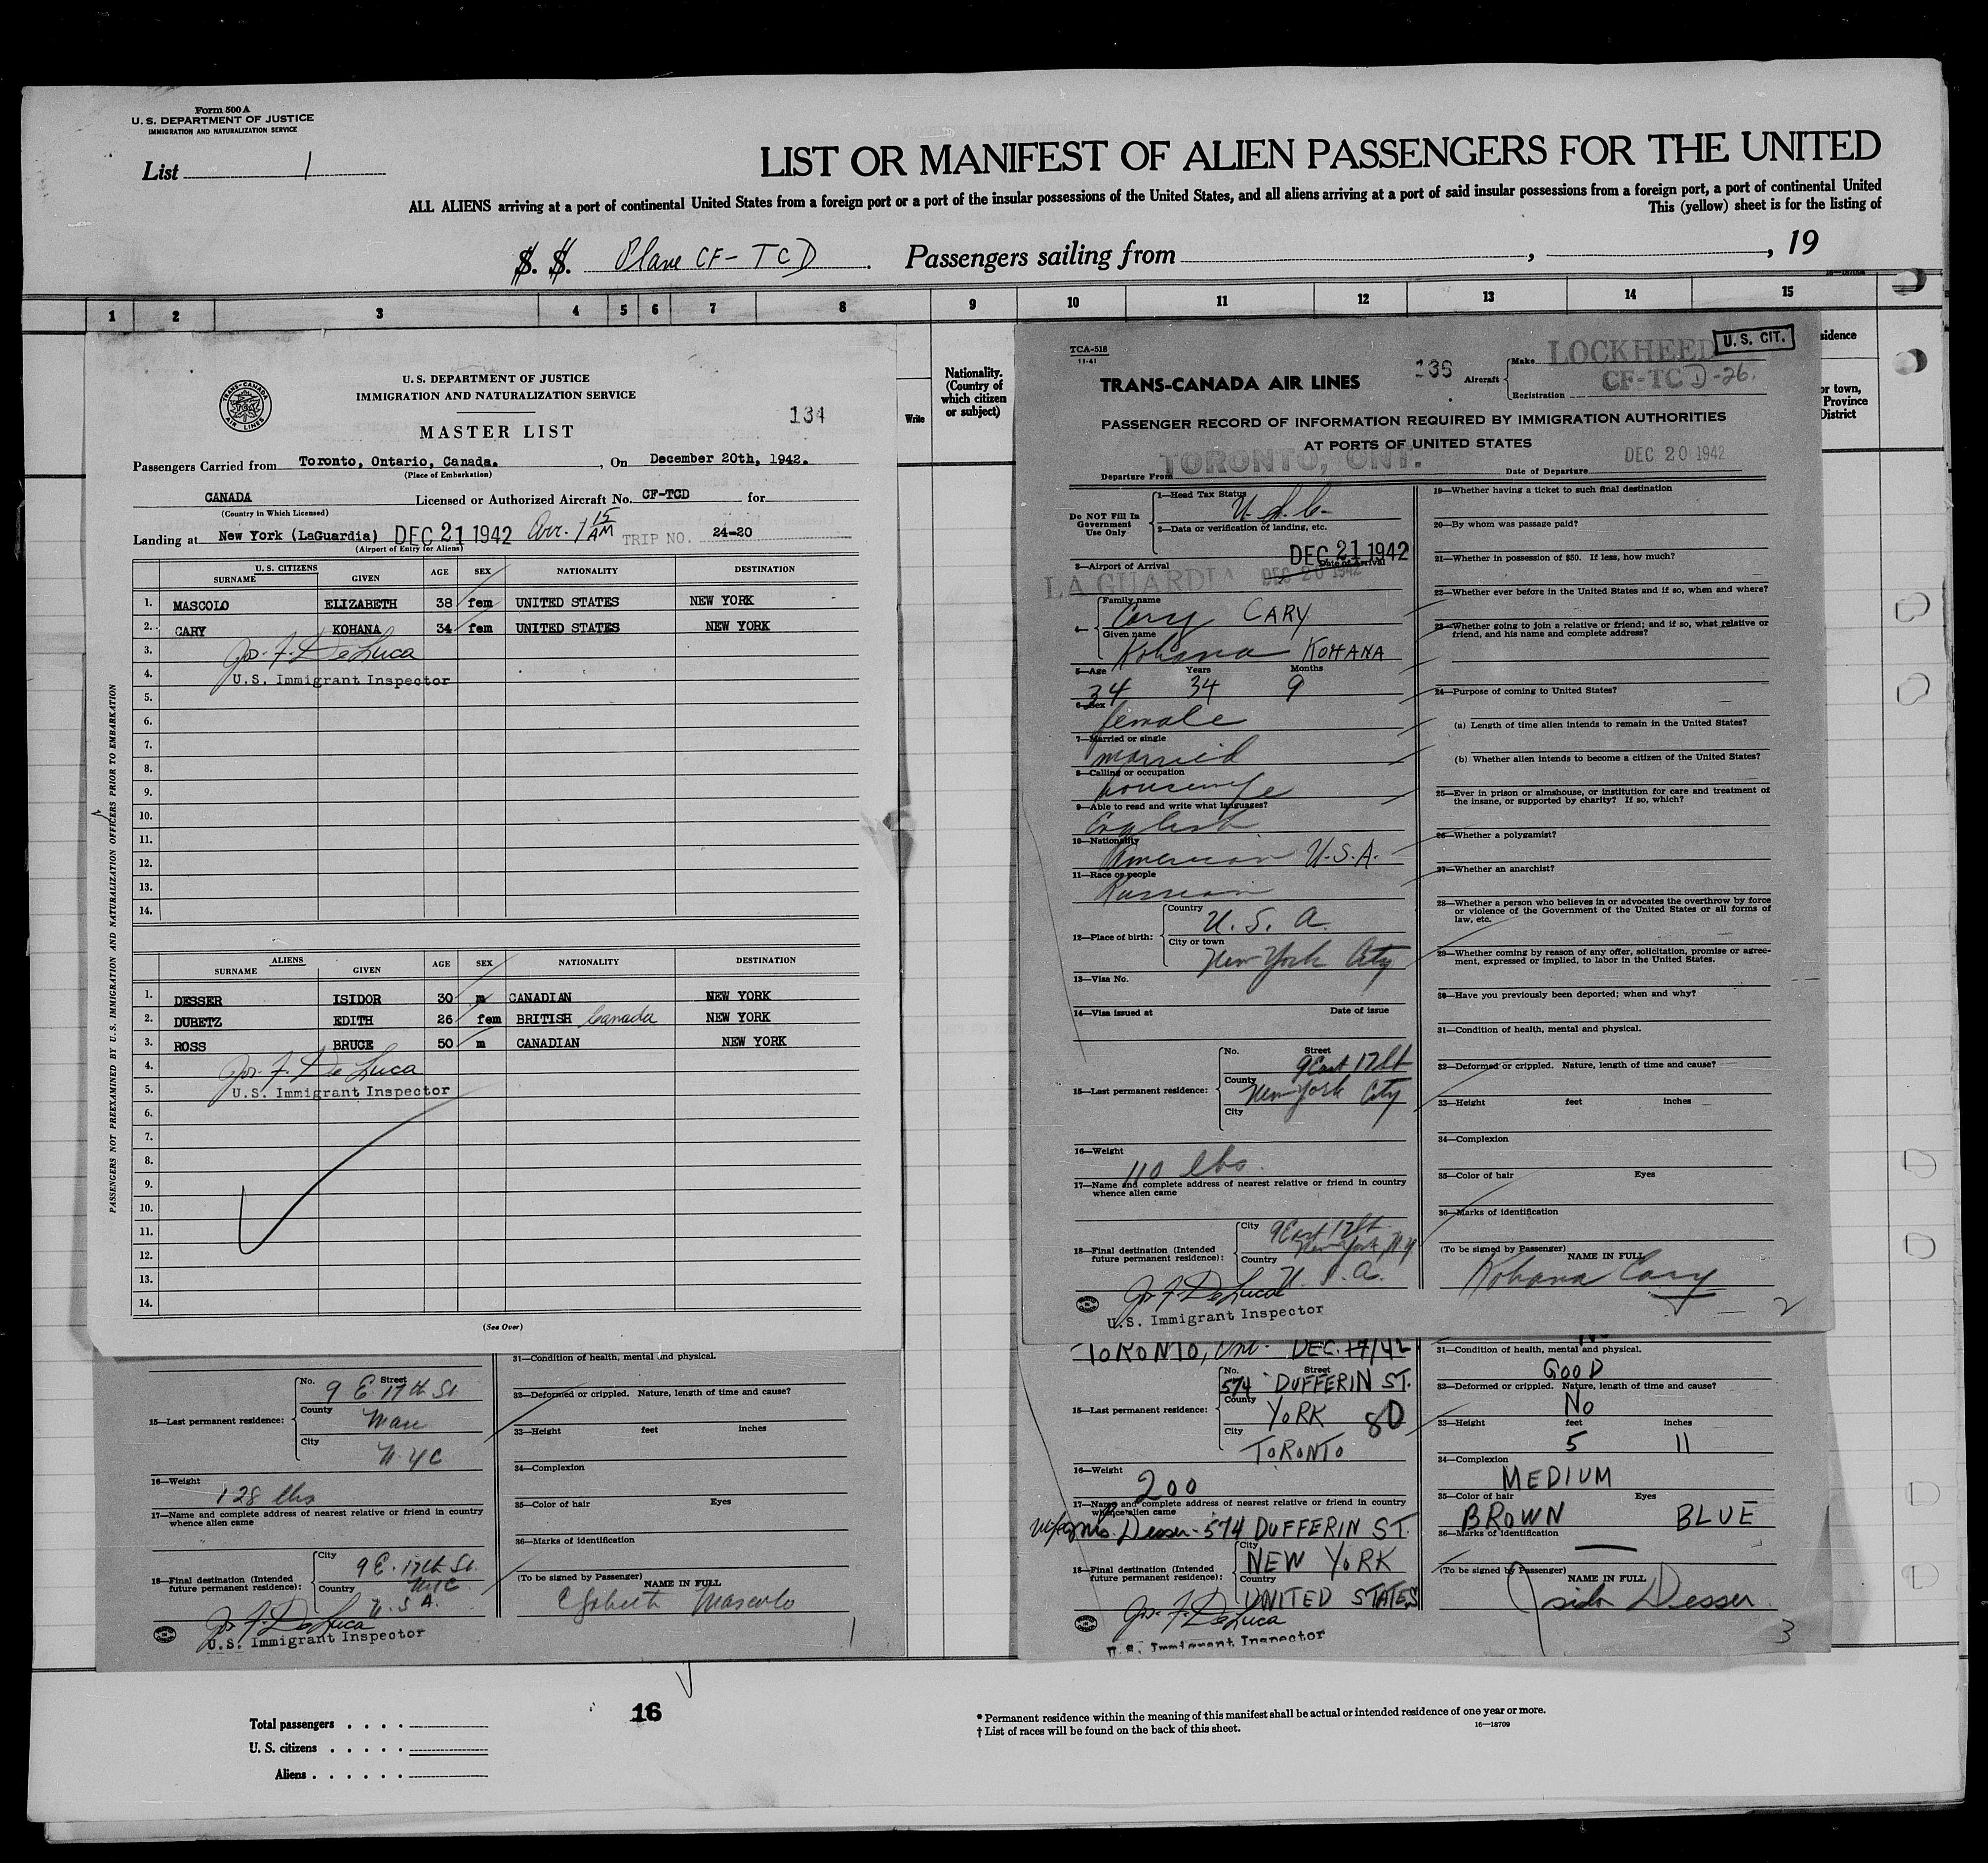 Form 500 A
U. S. DEPARTMENT OF JUSTICE
IMMIGRATION AND NATURALIZATION SERVICE
List 1
LIST OR MANIFEST OF ALIEN PASSENGERS FOR THE UNITED
ALL ALIENS arriving at a port of continental United States from a foreign port or a port of the insular possessions of the United States, and all aliens arriving at a port of said insular possessions from a foreign port, a port of continental United
This (yellow) sheet is for the listing of
S. S. Plane CF-TCD. Passengers sailing from , , 19
1 2 3 4 5 6 7 8 9 10 11 12 13 14 15
Nationality.
(Country of
which citizen
or subject)
Write
sidence
or town,
Province
District
TRANS-CANADA AIR LINES
U. S. DEPARTMENT OF JUSTICE
IMMIGRATION AND NATURALIZATION SERVICE
134
MASTER LIST
Passengers Carried from Toronto, Ontario, Canada. , On December 20th, 1942.
(Place of Embarkation)
CANADA Licensed or Authorized Aircraft No. CF-TCD for
(Country in Which Licensed)
Landing at New York (LaGuardia) DEC 21 1942 Arr. 1 15 AM TRIP NO. 24-20
(Airport of Entry for Aliens)
U. S. CITIZENS
SURNAME GIVEN AGE SEX NATIONALITY DESTINATION
1. MASCOLO ELIZABETH 38 fem UNITED STATES NEW YORK
2. CARY KOHANA 34 fem UNITED STATES NEW YORK
3. Jos. F. DeLuca
4. U.S. Immigrant Inspector
5.
6.
7.
8.
9.
10.
11.
12.
13.
14.
ALIENS
SURNAME GIVEN AGE SEX NATIONALITY DESTINATION
1. DESSER ISIDOR 30 m CANADIAN NEW YORK
2. DUBETZ EDITH 26 fem BRITISH Canada NEW YORK
3. ROSS BRUCE 50 m CANADIAN NEW YORK
4. Jos. F. DeLuca
5. U.S. Immigrant Inspector
6.
7.
8.
9.
10.
11.
12.
13.
14.
(See Over)
PASSENGERS NOT PREEXAMINED BY U. S. IMMIGRATION AND NATURALIZATION OFFICERS PRIOR TO EMBARKATION
15—Last permanent residence:
No. Street
9 E 17th St
County
Man
City
N.Y.C
16—Weight
128 lbs
17—Name and complete address of nearest relative or friend in country
whence alien came
18—Final destination (Intended
future permanent residence):
City 9 E. 17th St.
NYC
Country U.S.A.
Jos. F. DeLuca
U.S. Immigrant Inspector
31—Condition of health, mental and physical.
32—Deformed or crippled. Nature, length of time and cause?
33—Height feet inches
34—Complexion
35—Color of hair Eyes
36—Marks of identification
(To be signed by Passenger)
NAME IN FULL
Elizabeth Mascolo
1
TCA-518
11-41
TRANS-CANADA AIR LINES
136
Aircraft
Make LOCKHEED
Registration CF-TCD-26.
U. S. CIT.
PASSENGER RECORD OF INFORMATION REQUIRED BY IMMIGRATION AUTHORITIES
AT PORTS OF UNITED STATES
Departure From TORONTO, ONT. Date of Departure DEC 20 1942
Do NOT Fill In
Government
Use Only
1—Head Tax Status
U.S.C.
2—Data or verification of landing, etc.
DEC 21 1942
3—Airport of Arrival Date of Arrival
LA GUARDIA DEC 20 1942
4—
Family name
Cary CARY
Given name
Kohana KOHANA
5—Age Years Months
34 34 9
6—Sex
female
7—Married or single
married
8—Calling or occupation
housewife
9—Able to read and write what languages?
English
10—Nationality
American U.S.A.
11—Race or people
Russian
12—Place of birth:
Country
U. S. A.
City or town
New York City
13—Visa No.
14—Visa issued at Date of issue
15—Last permanent residence:
No. Street
9 East 17 St
County
New York City
City
16—Weight
110 lbs.
17—Name and complete address of nearest relative or friend in country
whence alien came
18—Final destination (Intended
future permanent residence):
City 9 East 17 St.
New York, N.Y.
Country U.S.A.
Jos. F. DeLuca
U.S. Immigrant Inspector
19—Whether having a ticket to such final destination
20—By whom was passage paid?
21—Whether in possession of $50. If less, how much?
22—Whether ever before in the United States and if so, when and where?
23—Whether going to join a relative or friend; and if so, what relative or
friend, and his name and complete address?
24—Purpose of coming to United States?
(a) Length of time alien intends to remain in the United States?
(b) Whether alien intends to become a citizen of the United States?
25—Ever in prison or almshouse, or institution for care and treatment of
the insane, or supported by charity? If so, which?
26—Whether a polygamist?
27—Whether an anarchist?
28—Whether a person who believes in or advocates the overthrow by force
or violence of the Government of the United States or all forms of
law, etc.
29—Whether coming by reason of any offer, solicitation, promise or agree-
ment, expressed or implied, to labor in the United States.
30—Have you previously been deported; when and why?
31—Condition of health, mental and physical.
32—Deformed or crippled. Nature, length of time and cause?
33—Height feet inches
34—Complexion
35—Color of hair Eyes
36—Marks of identification
(To be signed by Passenger)
NAME IN FULL
Kohana Cary
2
TORONTO, Ont. DEC. 17/42
15—Last permanent residence:
No. Street
574 DUFFERIN ST.
County
YORK 80
City
TORONTO
16—Weight
200
17—Name and complete address of nearest relative or friend in country
whence alien came
wife Mrs. Desser - 574 DUFFERIN ST.
18—Final destination (Intended
future permanent residence):
City
NEW YORK
Country
UNITED STATES
Jos. F. DeLuca
U.S. Immigrant Inspector
No
31—Condition of health, mental and physical.
GOOD
32—Deformed or crippled. Nature, length of time and cause?
No
33—Height feet inches
5 11
34—Complexion
MEDIUM
35—Color of hair Eyes
BROWN BLUE
36—Marks of identification
—
(To be signed by Passenger)
NAME IN FULL
Isidor Desser
3
Total passengers . . . .
U. S. citizens . . . . .
Aliens . . . . . .
16
* Permanent residence within the meaning of this manifest shall be actual or intended residence of one year or more.
† List of races will be found on the back of this sheet.
16—18709